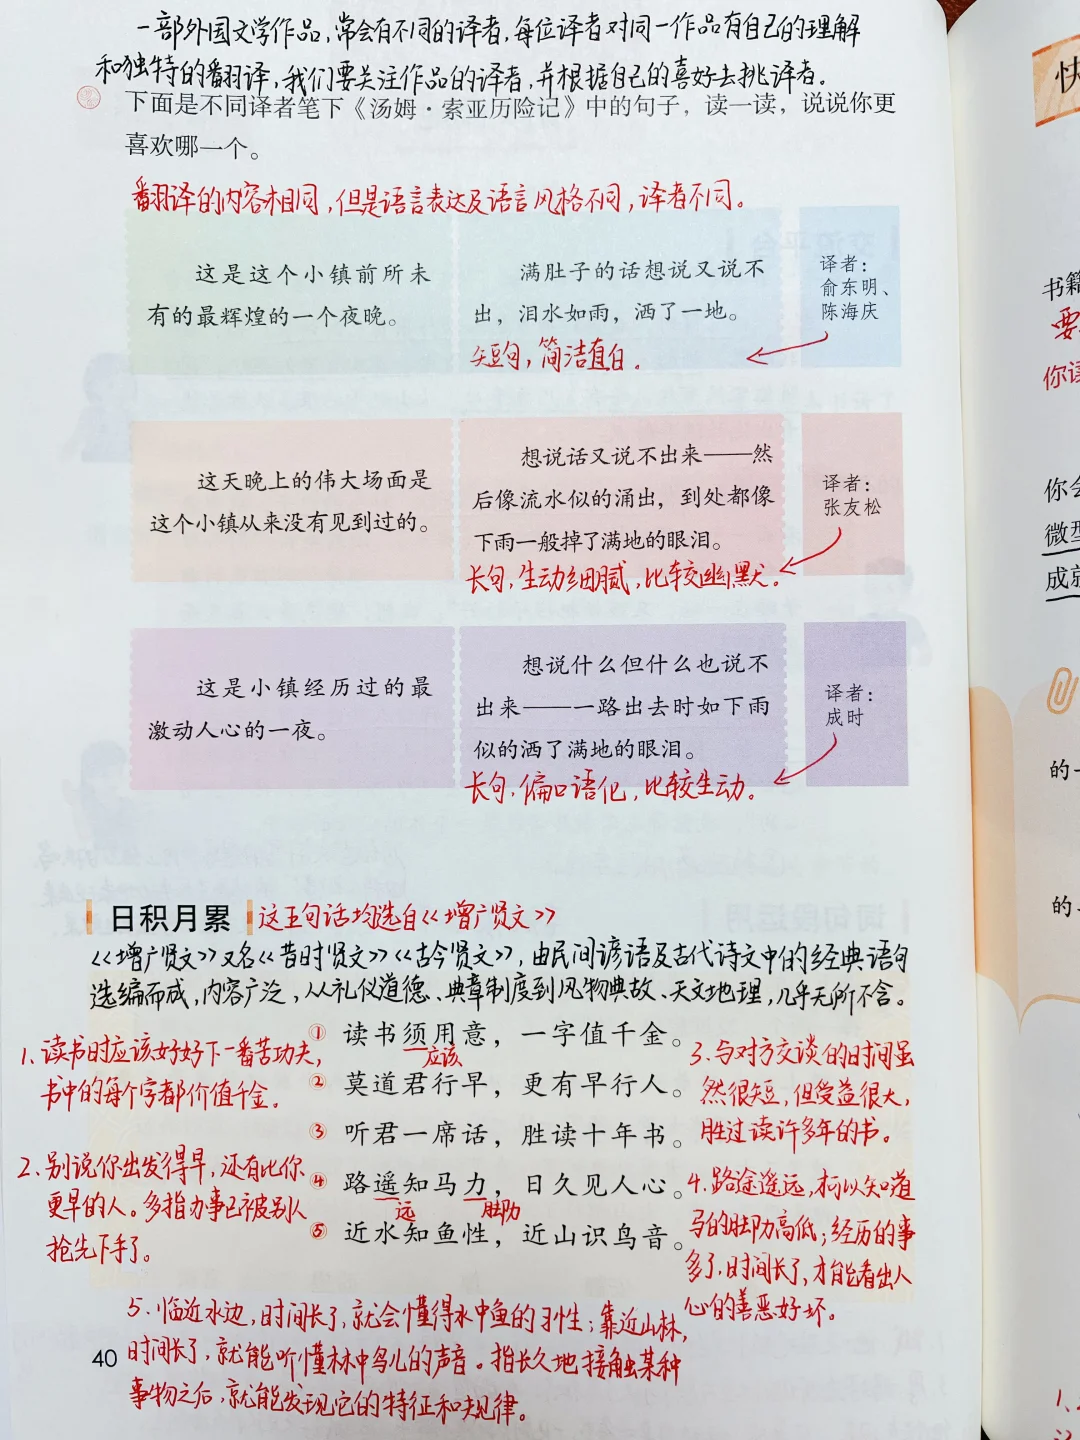 一部外国文学作品，常会有不同的译者，每位译者对同一作品有自己的理解
和独特的翻译，我们要关注作品的译者，并根据自己的喜好去挑译者。
下面是不同译者笔下《汤姆·索亚历险记》中的句子，读一读，说说你更
喜欢哪一个。
翻译的内容相同，但是语言表达及语言风格不同，译者不同。
这是这个小镇前所未
有的最辉煌的一个夜晚。
满肚子的话想说又说不
出，泪水如雨，洒了一地。
短句，简洁直白。
译者：
俞东明、
陈海庆
这天晚上的伟大场面是
这个小镇从来没有见到过的。
想说话又说不出来——然
后像流水似的涌出，到处都像
下雨一般掉了满地的眼泪。
长句，生动细腻，比较幽默。
译者：
张友松
这是小镇经历过的最
激动人心的一夜。
想说什么但什么也说不
出来——一路出去时如下雨
似的洒了满地的眼泪。
长句，偏口语化，比较生动。
译者：
成时
日积月累 这五句话均选自《增广贤文》
《增广贤文》又名《昔时贤文》《古今贤文》，由民间谚语及古代诗文中的经典语句
选编而成，内容广泛，从礼仪道德、典章制度到风物典故、天文地理，几乎无所不含。
①读书须用意，一字值千金。
应该
②莫道君行早，更有早行人。
③听君一席话，胜读十年书。
④路遥知马力，日久见人心。
远 脚力
⑤近水知鱼性，近山识鸟音。
1.读书时应该好好下一番苦功夫，
书中的每个字都价值千金。
2.别说你出发得早，还有比你
更早的人。多指办事已被别人
抢先下手了。
3.与对方交谈的时间虽
然很短，但受益很大，
胜过读许多年的书。
4.路途遥远，才可以知道
马的脚力高低；经历的事
多了，时间长了，才能看出人
心的善恶好坏。
5.临近水边，时间长了，就会懂得水中鱼的习性；靠近山林，
时间长了，就能听懂林中鸟儿的声音。指长久地接触某种
事物之后，就能发现它的特征和规律。
40
快
书籍
要
你读
你会
微型
成就
的一
的